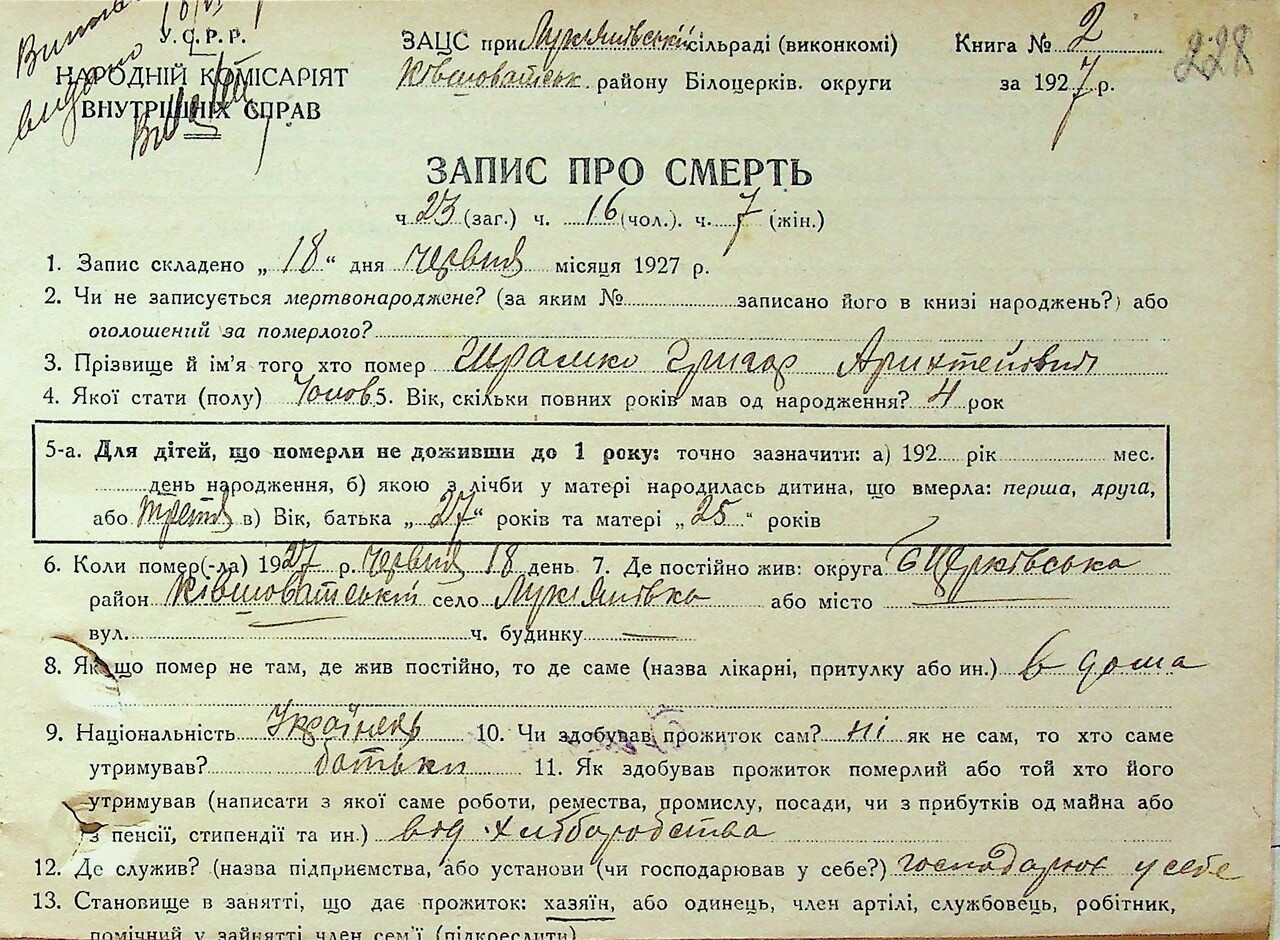 У.С.Р.Р.
НАРОДНІЙ КОМІСАРІЯТ
ВНУТРІШНІХ СПРАВ
ЗАЦС при Лукянівській сільраді (виконкомі)
Ківшоватськ. району Білоцерків. округи
Книга № 2
за 1927 р.
228
ЗАПИС ПРО СМЕРТЬ
ч 23 (заг.) ч. 16 (чол.). ч. 7 (жін.)
1. Запис складено „ 18 “ дня червня місяця 1927 р.
2. Чи не записується мертвонароджене? (за яким № записано його в книзі народжень?) або
оголошений за померлого?
3. Прізвище й ім'я того хто помер Григор
4. Якої стати (полу) Чолов 5. Вік, скільки повних років мав од народження? 4 рок
5-а. Для дітей, що померли не доживши до 1 року: точно зазначити: а) 192 рік мес.
день народження, б) якою з лічби у матері народилась дитина, що вмерла: перша, друга,
або третя в) Вік, батька „ 27 “ років та матері „ 25 “ років
6. Коли помер(-ла) 1927 р. червня 18 день 7. Де постійно жив: округа Б Церківська
район Ківшоватській село Лукянівка або місто
вул. ч. будинку
8. Якщо помер не там, де жив постійно, то де саме (назва лікарні, притулку або ин.) в дома
9. Національність Українець 10. Чи здобував прожиток сам? ні як не сам, то хто саме
утримував? батьки 11. Як здобував прожиток померлий або той хто його
утримував (написати з якої саме роботи, ремества, промислу, посади, чи з прибутків од майна або
з пенсії, стипендії та ин.) від хліборобства
12. Де служив? (назва підприємства, або установи (чи господарював у себе?) господарює у себе
13. Становище в занятті, що дає прожиток: хазяїн, або одинець, член артілі, службовець, робітник,
помічний у зайнятті член сем'ї (підкреслити)